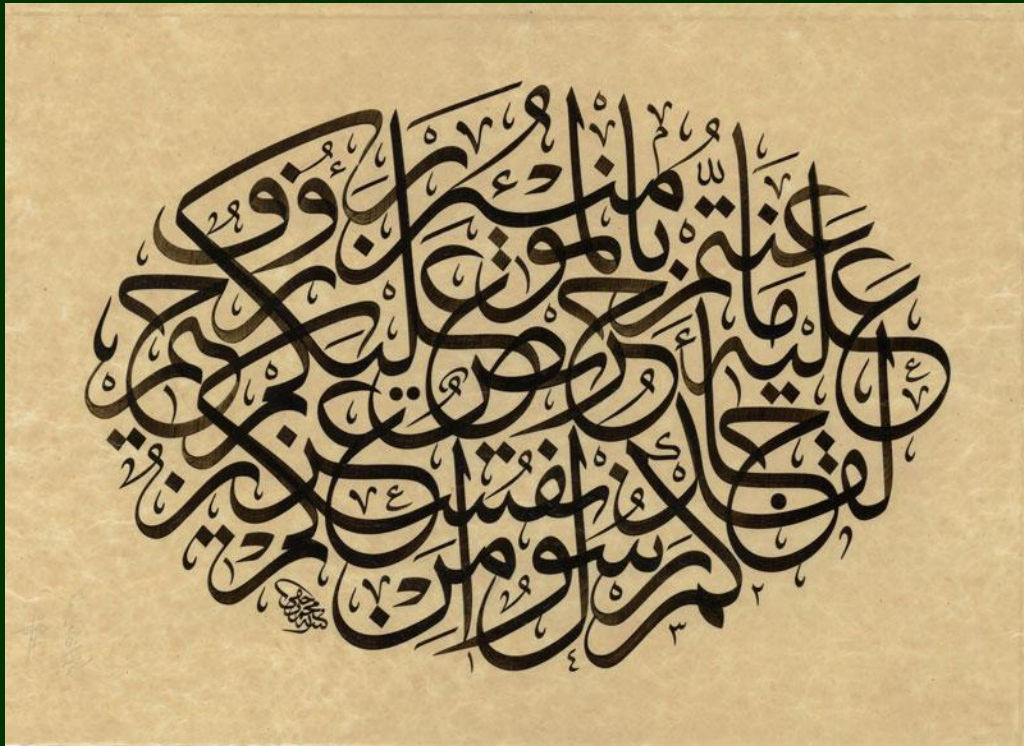 لقد جاءكم رسول من أنفسكم عزيز
عليه ما عنتم حريص عليكم
بالمؤمنين رءوف رحيم
٢
٣
٤
١